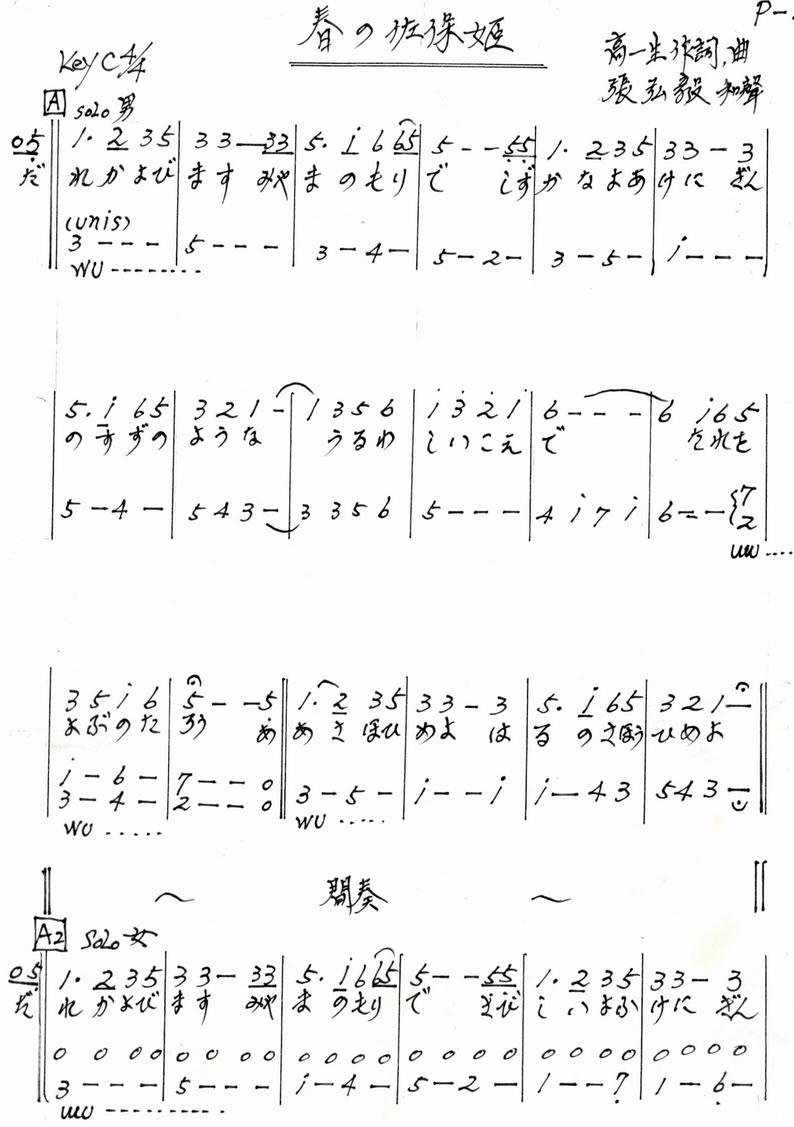 P-1
春の佐保姫
Key C 4/4
高一生作詞.曲
張弘毅 和聲
A solo 男
05 | 1· 2 35 | 33—33 | 5· i 6 65 | 5 - - 55 | 1· 235 | 33 - 3
だ れ か よび ます みや ま のもり で しず か なよあ けに ぎん
(unis)
3 - - - | 5 - - - | 3 - 4 - | 5 - 2 - | 3 - 5 - | i - - -
WU --------
5· i 65 | 3 2 1 - | 1 3 5 6 | i 3 2 i | 6 - - - | 6 i 6 5
のすずの ような うるわ しいこえ で たれを
5 - 4 - | 5 4 3 - | 3 3 5 6 | 5 - - - | 4 i 7 i | 6 - - {7 2
UW ....
3 5 i 6 | 5 - - 5 || 1· 2 35 | 33 - 3 | 5· i 65 | 3 2 1 —
よぶのた ろう あ あ さ ほひ めよ は る のさほう ひめよ
i - 6 - | 7 - - 0
3 - 4 - | 2 - - 0 || 3 - 5 - | i - - i | i — 4 3 | 5 4 3 —
WU ..... WU .....
~ 間奏 ~
A2 Solo 女
05 | 1· 2 35 | 33 - 33 | 5· i 6 65 | 5 - - 55 | 1· 2 35 | 33 - 3
だ れ か よび ます みや ま のもり で さび し いよふ けに ぎん
0 0 0 0 | 0 0 0 0 | 0 0 0 0 | 0 0 0 0 | 0 0 0 0 | 0 0 0 0
3 - - - | 5 - - - | i - 4 - | 5 - 2 - | 1 - - 7 | 1 - 6 -
UW ----------